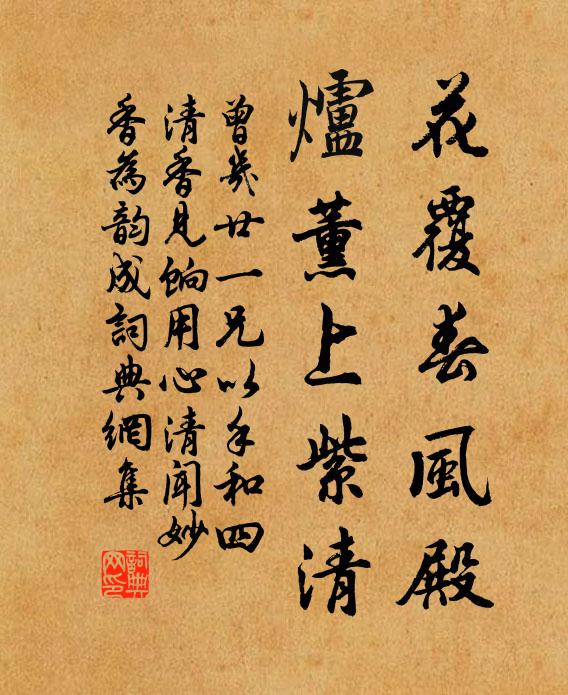 花覆春風殿
爐薰上紫清
曾幾廿一兄以手和四
清香見餉用心清聞妙
香為韵成詞典網集
詞典网印